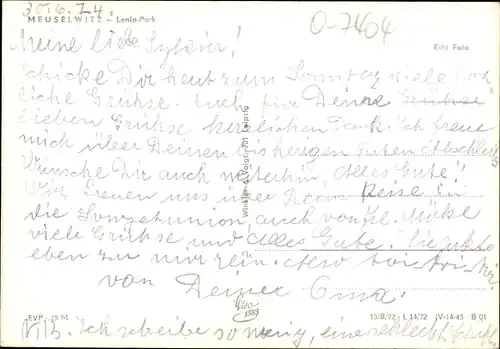 25.6.74.
MEUSELWITZ – Lenin-Park
0-7404
Echt Foto
Meine liebe Sylvia!
Schicke Dir heut zum Sonntag viele herz-
liche Grühse. Auch für Deine Grühse
lieben Grühse herzlichen Dank. Ich freue
mich über Deinen bisherigen guten Abschluß
Wünsche Dir auch weiterhin Alles Gute!
Wir freuen uns über Reise in
die Sowjetunion, auch von
viele Grühse und Alles Gute.
eben zu mir rein. Also toi-toi-toi
von Deiner Oma.
Winkler & Voigt, 701 Leipzig
EVP -,25 M
15/B/72 L 14/72 IV-14-45 B 01
Ich schreibe so wenig, eine schlechte